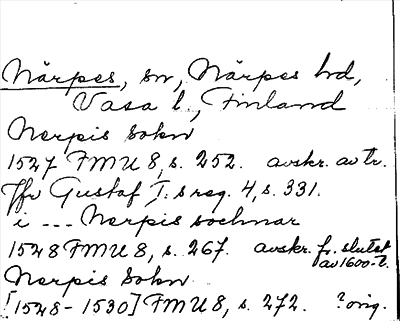 Närpes, sn, Närpes hd,
Vasa l., Finland
Nerpis Sokn
1527 FMU 8, s. 252. avskr. av tr.
Jfr Gustaf I:s reg. 4, s. 331.
i --- Nerpis sochnar
1528 FMU 8, s. 267. avskr. fr. slutet
av 1600-t.
Nerpis Sokn
[1528-1530] FMU 8, s. 272. ? orig.